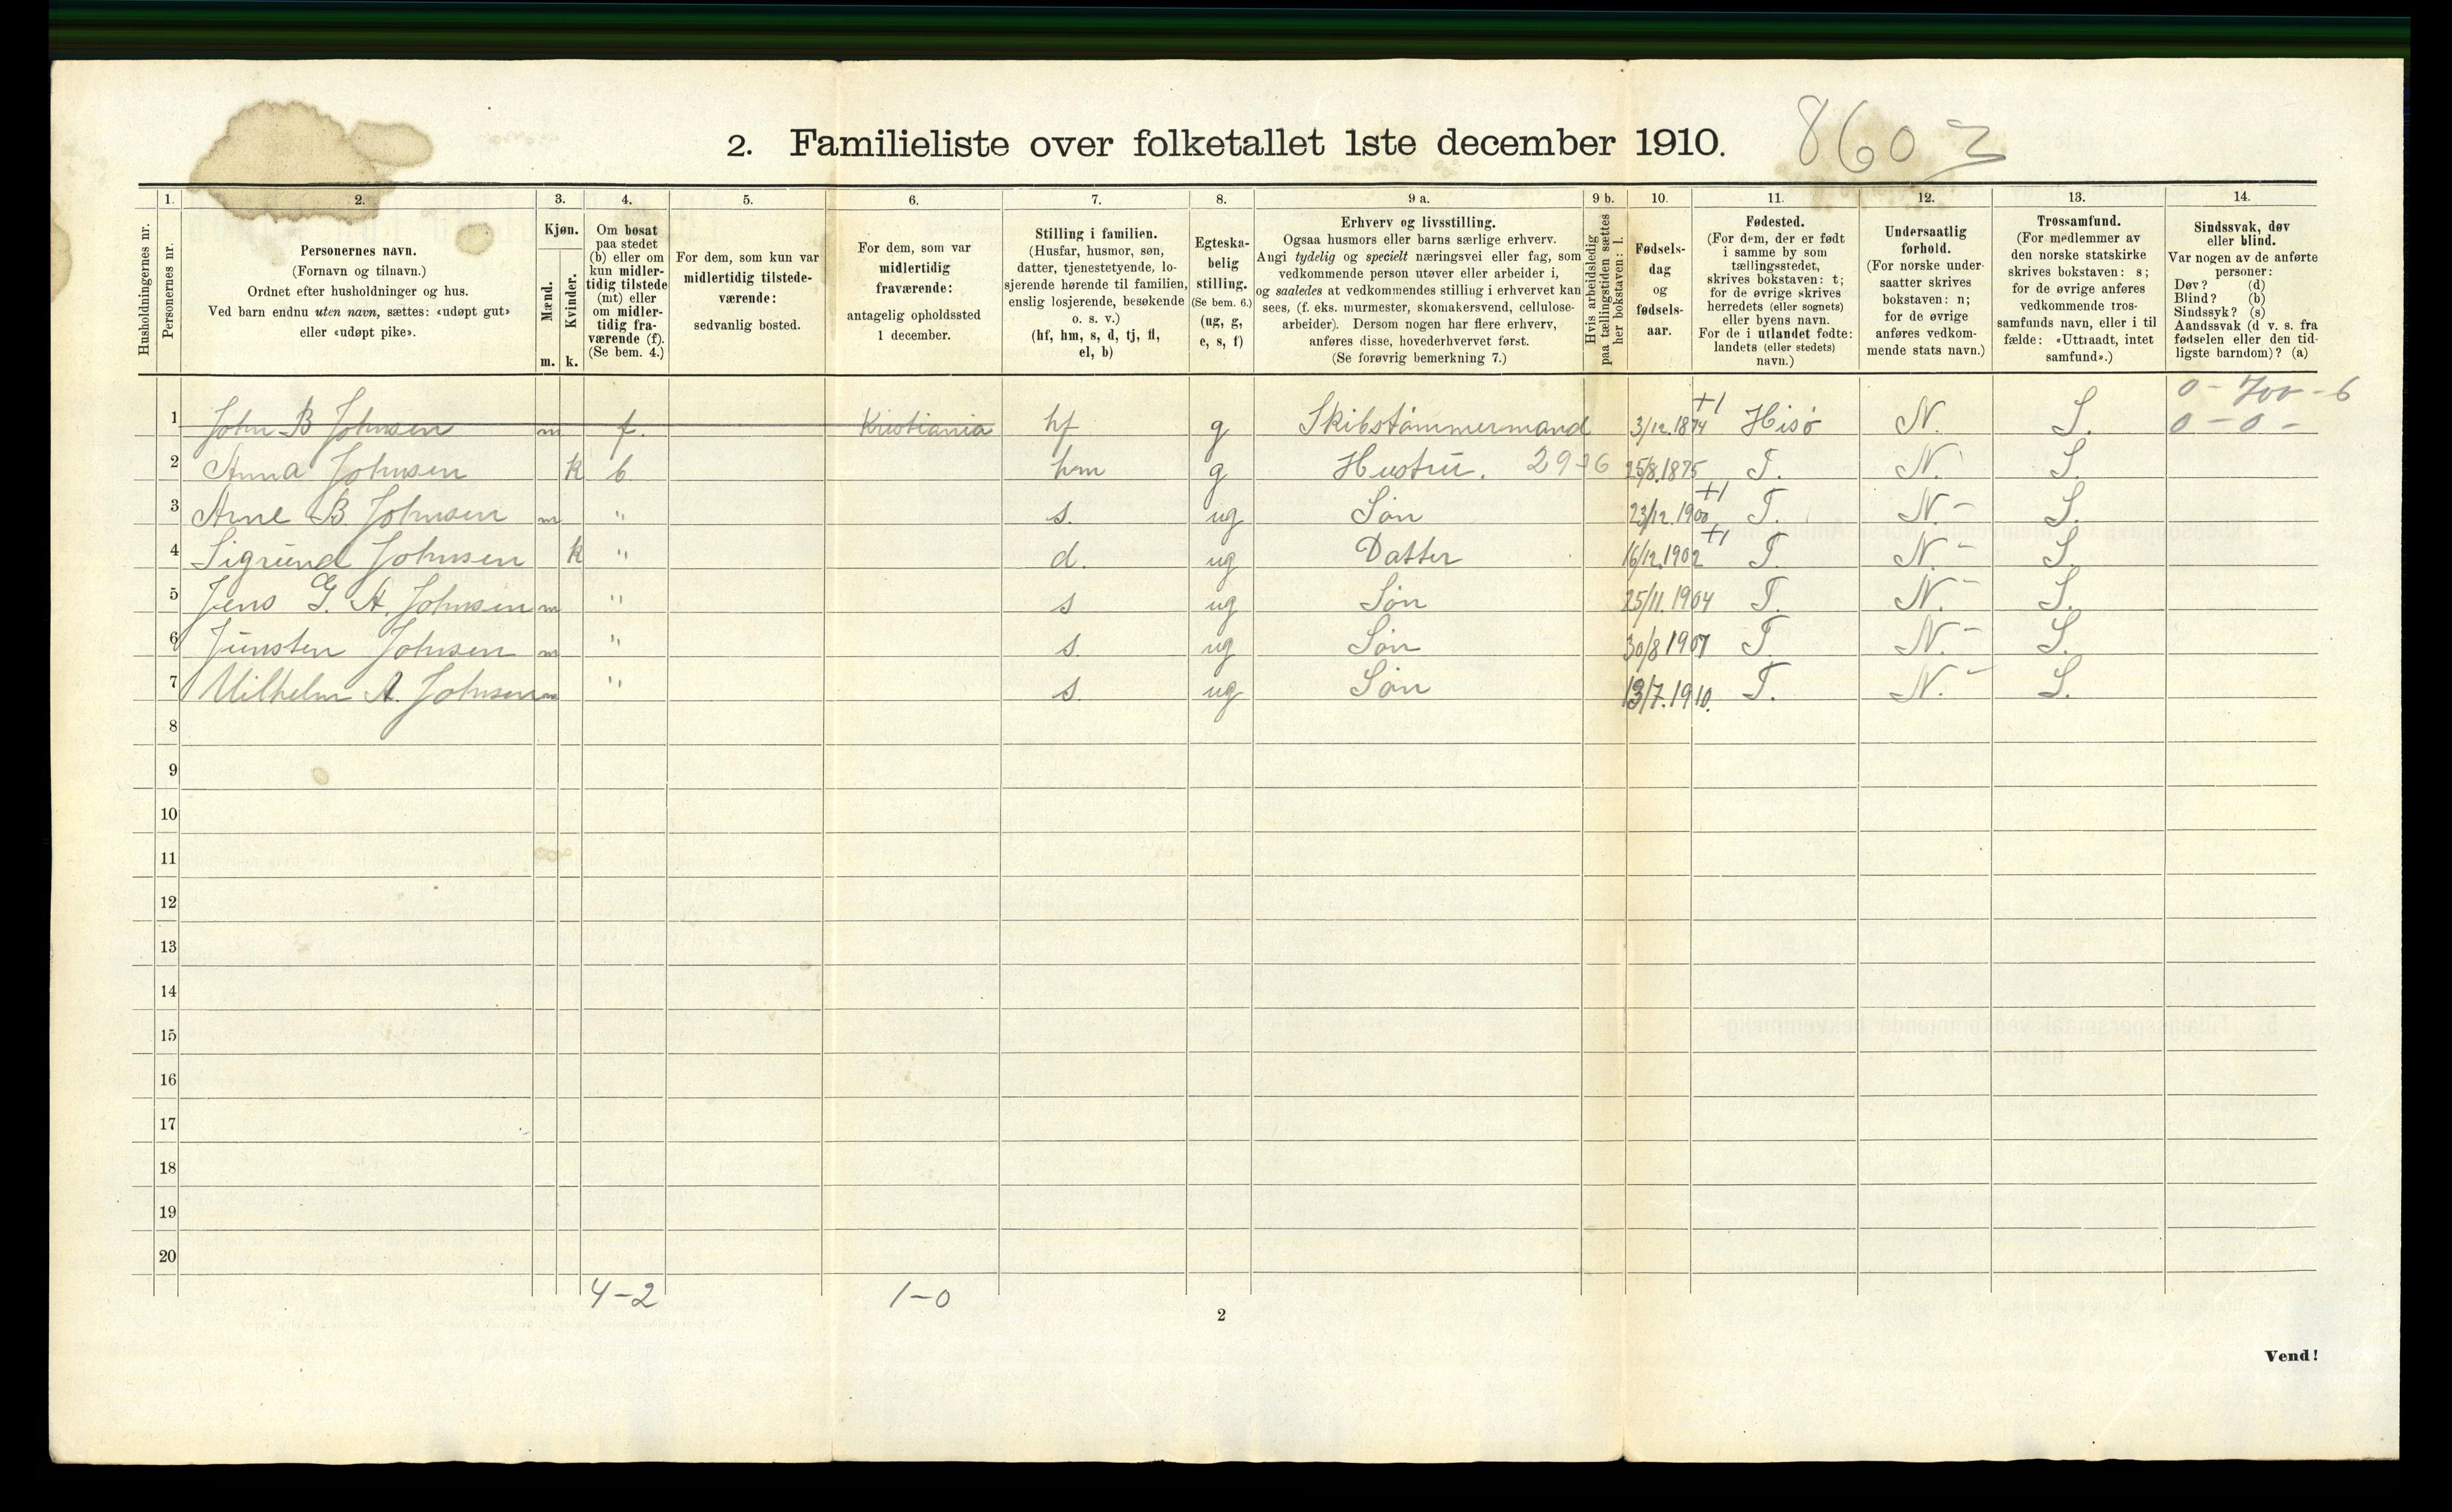 2. Familieliste over folketallet 1ste december 1910. 8603
Husholdningernes nr.
1. Personernes nr.
2. Personernes navn. (Fornavn og tilnavn.) Ordnet efter husholdninger og hus. Ved barn endnu uten navn, sættes: «udøpt gut» eller «udøpt pike».
3. Kjøn. Mænd. m. Kvinder. k.
4. Om bosat paa stedet (b) eller om kun midlertidig tilstede (mt) eller om midlertidig fraværende (f). (Se bem. 4.)
5. For dem, som kun var midlertidig tilstedeværende: sedvanlig bosted.
6. For dem, som var midlertidig fraværende: antagelig opholdssted 1 december.
7. Stilling i familien. (Husfar, husmor, søn, datter, tjenestetyende, losjerende hørende til familien, enslig losjerende, besøkende o. s. v.) (hf, hm, s, d, tj, fl, el, b)
8. Egteskabelig stilling. (Se bem. 6.) (ug, g, e, s, f)
9 a. Erhverv og livsstilling. Ogsaa husmors eller barns særlige erhverv. Angi tydelig og specielt næringsvei eller fag, som vedkommende person utøver eller arbeider i, og saaledes at vedkommendes stilling i erhvervet kan sees, (f. eks. murmester, skomakersvend, cellulosearbeider). Dersom nogen har flere erhverv, anføres disse, hovederhvervet først. (Se forøvrig bemerkning 7.)
9 b. Hvis arbeidsledig paa tællingstiden sættes her bokstaven: l.
10. Fødselsdag og fødselsaar.
11. Fødested. (For dem, der er født i samme by som tællingsstedet, skrives bokstaven: t; for de øvrige skrives herredets (eller sognets) eller byens navn. For de i utlandet fødte: landets (eller stedets) navn.)
12. Undersaatlig forhold. (For norske undersaatter skrives bokstaven: n; for de øvrige anføres vedkommende stats navn.)
13. Trossamfund. (For medlemmer av den norske statskirke skrives bokstaven: s; for de øvrige anføres vedkommende trossamfunds navn, eller i tilfælde: «Uttraadt, intet samfund».)
14. Sindssvak, døv eller blind. Var nogen av de anførte personer: Døv? (d) Blind? (b) Sindssyk? (s) Aandssvak (d v. s. fra fødselen eller den tidligste barndom)? (a)
0 - 700 - 6
1 John B Johnsen m f. Kristiania hf g Skibstømmermand 3/12.1874 +1 Hisø N. S. 0 - 0 -
2 Anna Johnsen k b hm g Hustru. 29-6 25/8.1875 T. N. S.
3 Arne B. Johnsen m " s. ug Søn 23/12.1900 +1 T. N. - S.
4 Sigrund Johnsen k " d. ug Datter 16/12.1902 +1 T. N. - S.
5 Jens G. A. Johnsen m " s ug Søn 25/11.1904 T. N. - S.
6 Junsten Johnsen m " s. ug Søn 30/8 1907 T. N. - S.
7 Vilhelm A. Johnsen m " s. ug Søn 13/7.1910. T. N. - S.
8
9
10
11
12
13
14
15
16
17
18
19
20
4-2 1-0
2
Vend!